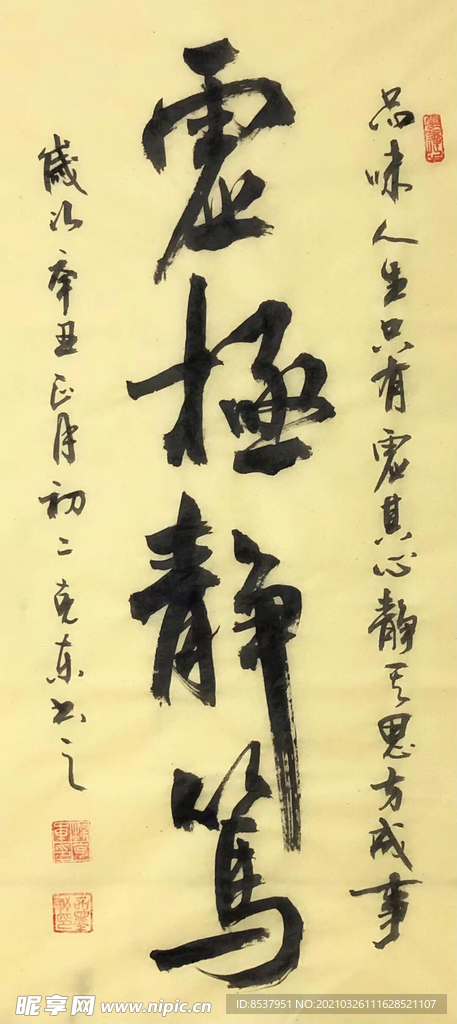 品味人生只有虚其心静其思方成事
虚極静篤
歲次辛丑正月初二克东书之
昵享网 www.nipic.cn
ID:8537951 NO:20210326111628521107